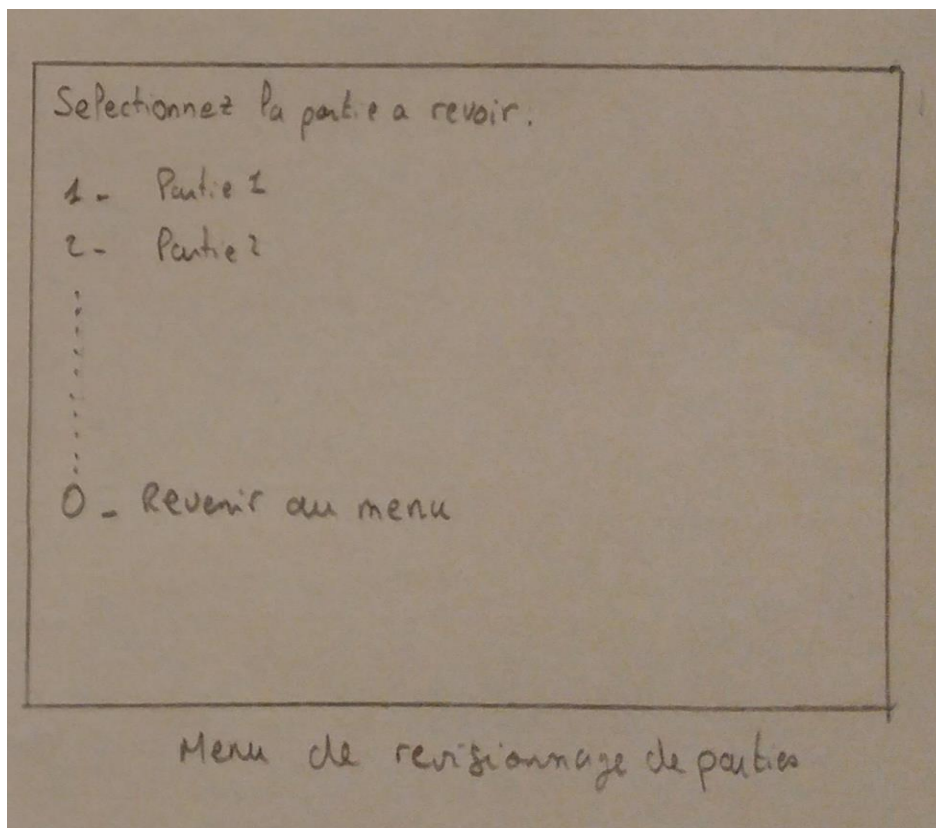 Selectionnez la partie a revoir.
1 - Partie 1
2 - Partie 2
0 - Revenir au menu
Menu de revisionnage de parties